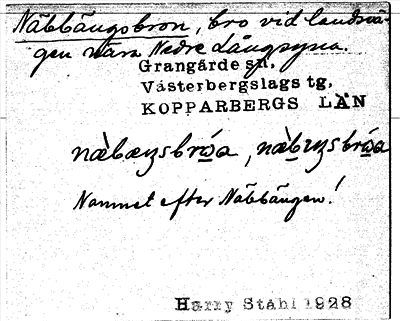 Näbbängsbron, bro vid landsvä-
gen nära Nedre Långsyna.
Grangärde sn,
Västerbergslags tg,
KOPPARBERGS LÄN
næ̀bæŋsbrωa, næ̀bŋsbrωa
Namnet efter Näbbängen!
Harry Ståhl 1928